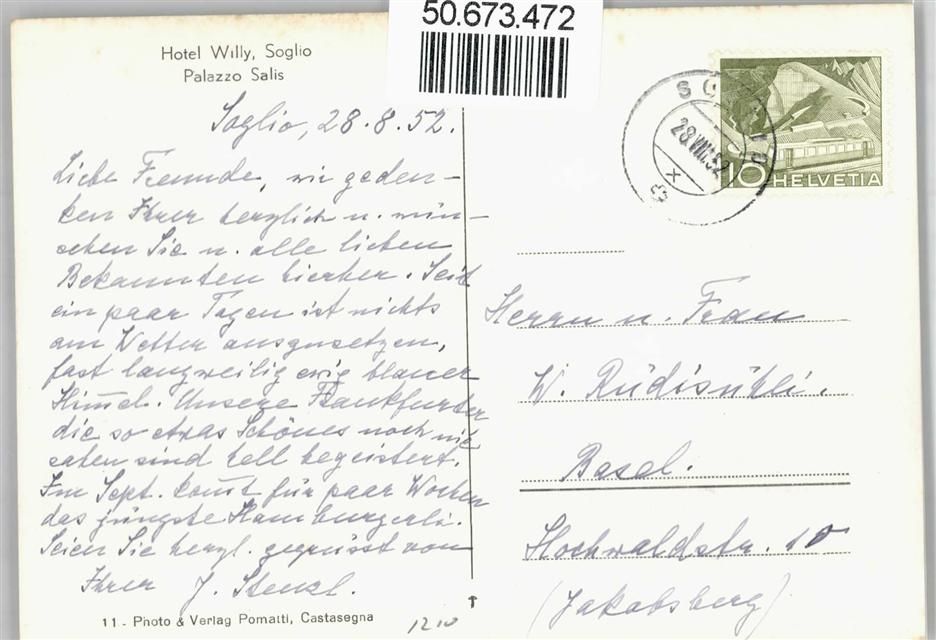 50.673.472
Hotel Willy, Soglio
Palazzo Salis
Soglio, 28.8.52.
Liebe Freunde, wir geden-
ken Ihrer herzlich u. wün-
schen Sie u. alle lieben
Bekannten hierher. Seit
ein paar Tagen ist nichts
am Wetter auszusetzen,
fast langweilig ewig blauer
Him̅el. Unsere Frankfurter
die so etwas Schönes noch nie
sahen sind hell begeistert.
Im Sept. kom̅t für paar Wochen
das jüngste Hamburgerli.
Seien Sie herzl. gegrüsst von
Ihrer J. Stenzl.
11 - Photo & Verlag Pomatti, Castasegna
1210
28.VIII.52
10 HELVETIA
Herrn u. Frau
W. Rüdisühli.
Basel.
Hochwaldstr. 10
(Jakobsberg)